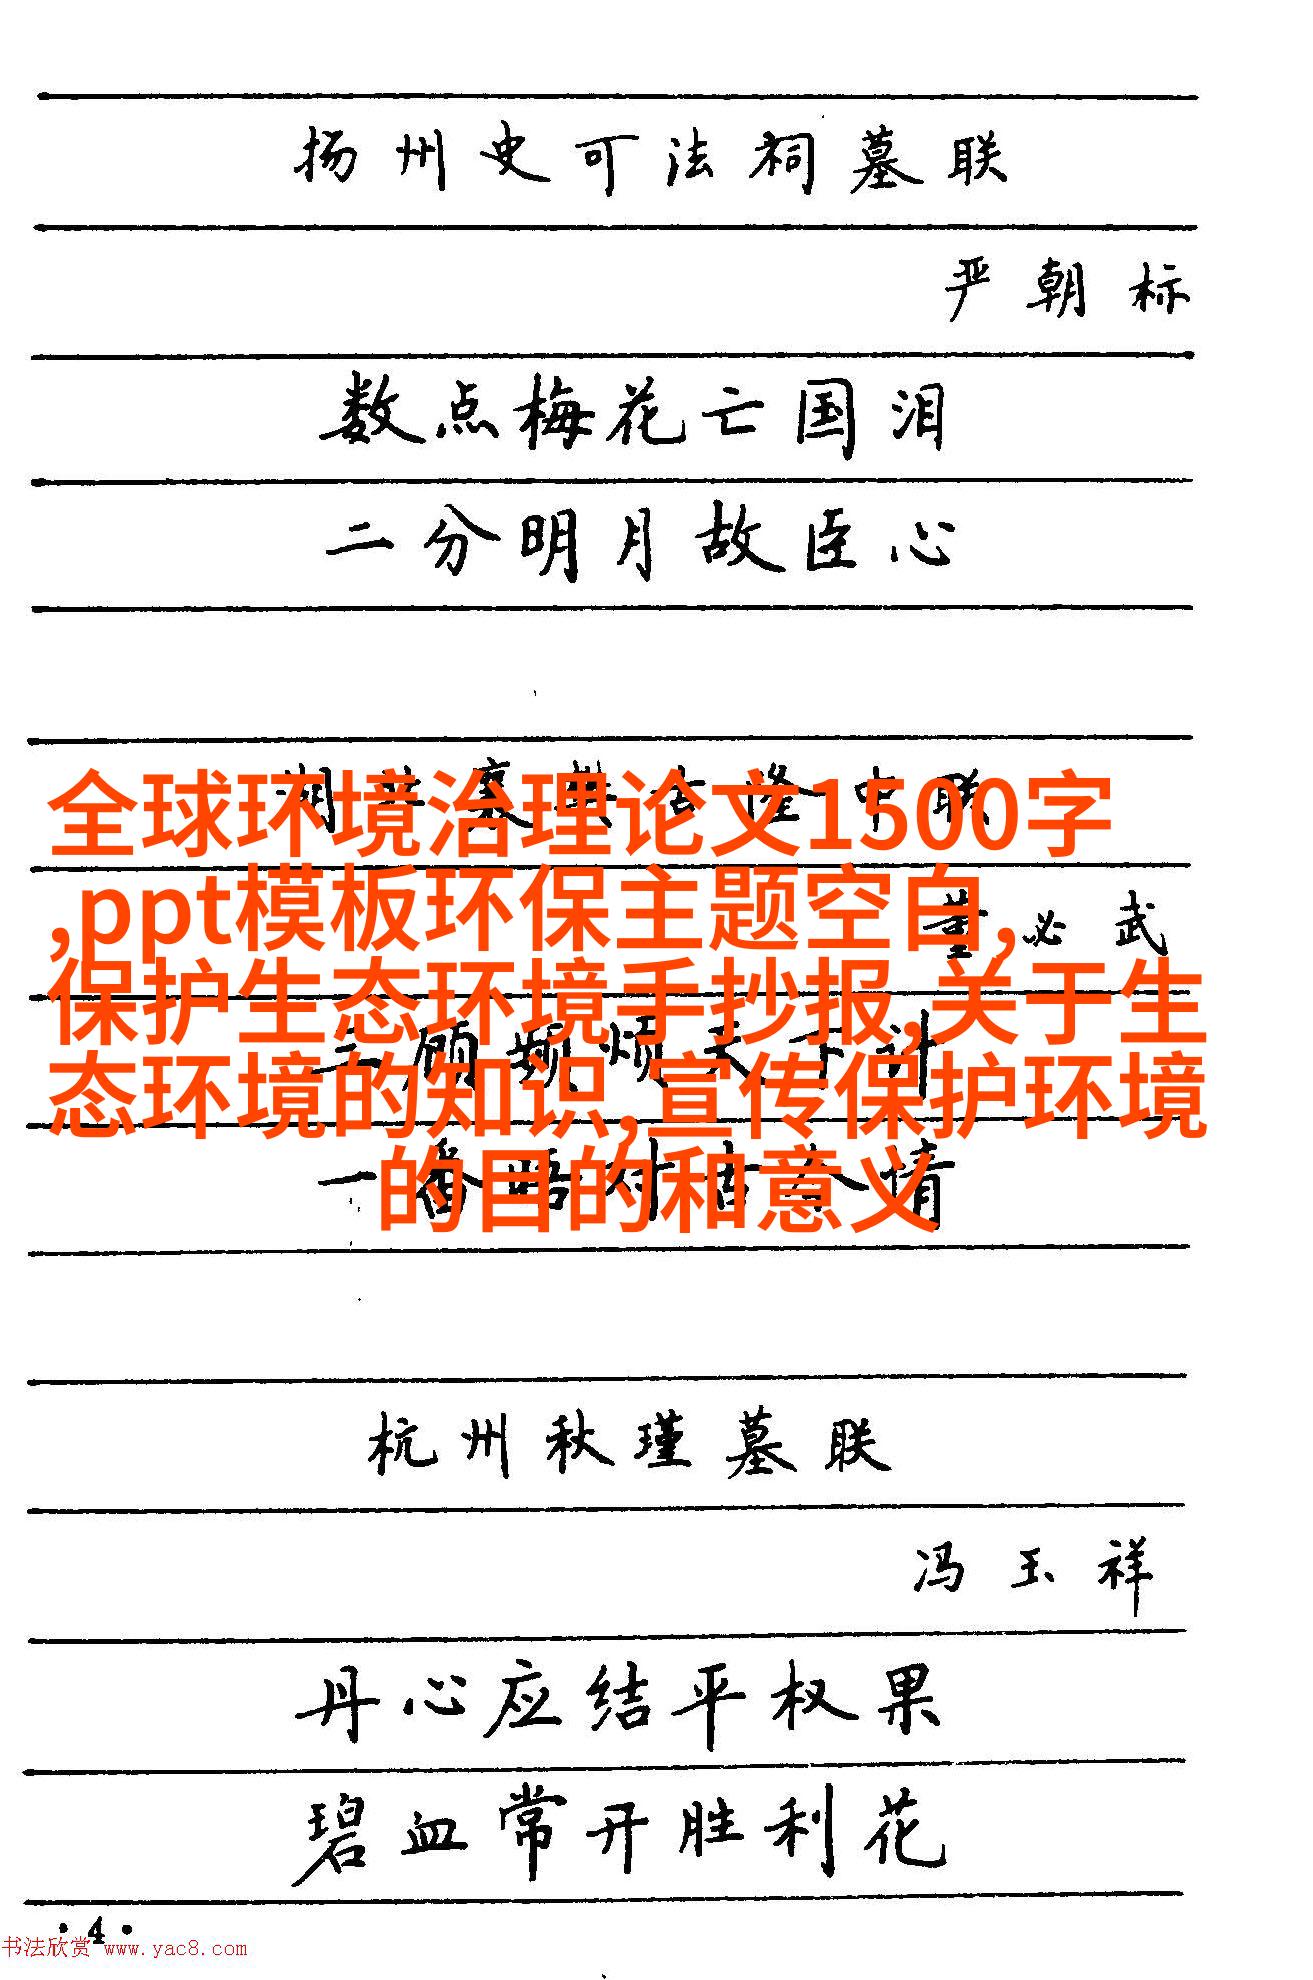 扬州史可法祠墓联
严朝标
数点梅花亡国泪
二分明月故臣心
全球环境治理论文1500字
,ppt模板环保主题空白,
保护生态环境手抄报,关于生
态环境的知识,宣传保护环境
的目的和意义
联
必武
三顾频烦天下计
一番晤对古今情
杭州秋瑾墓联
冯玉祥
丹心应结平权果
碧血常开胜利花
·4·
书法欣赏 www.yac8.com